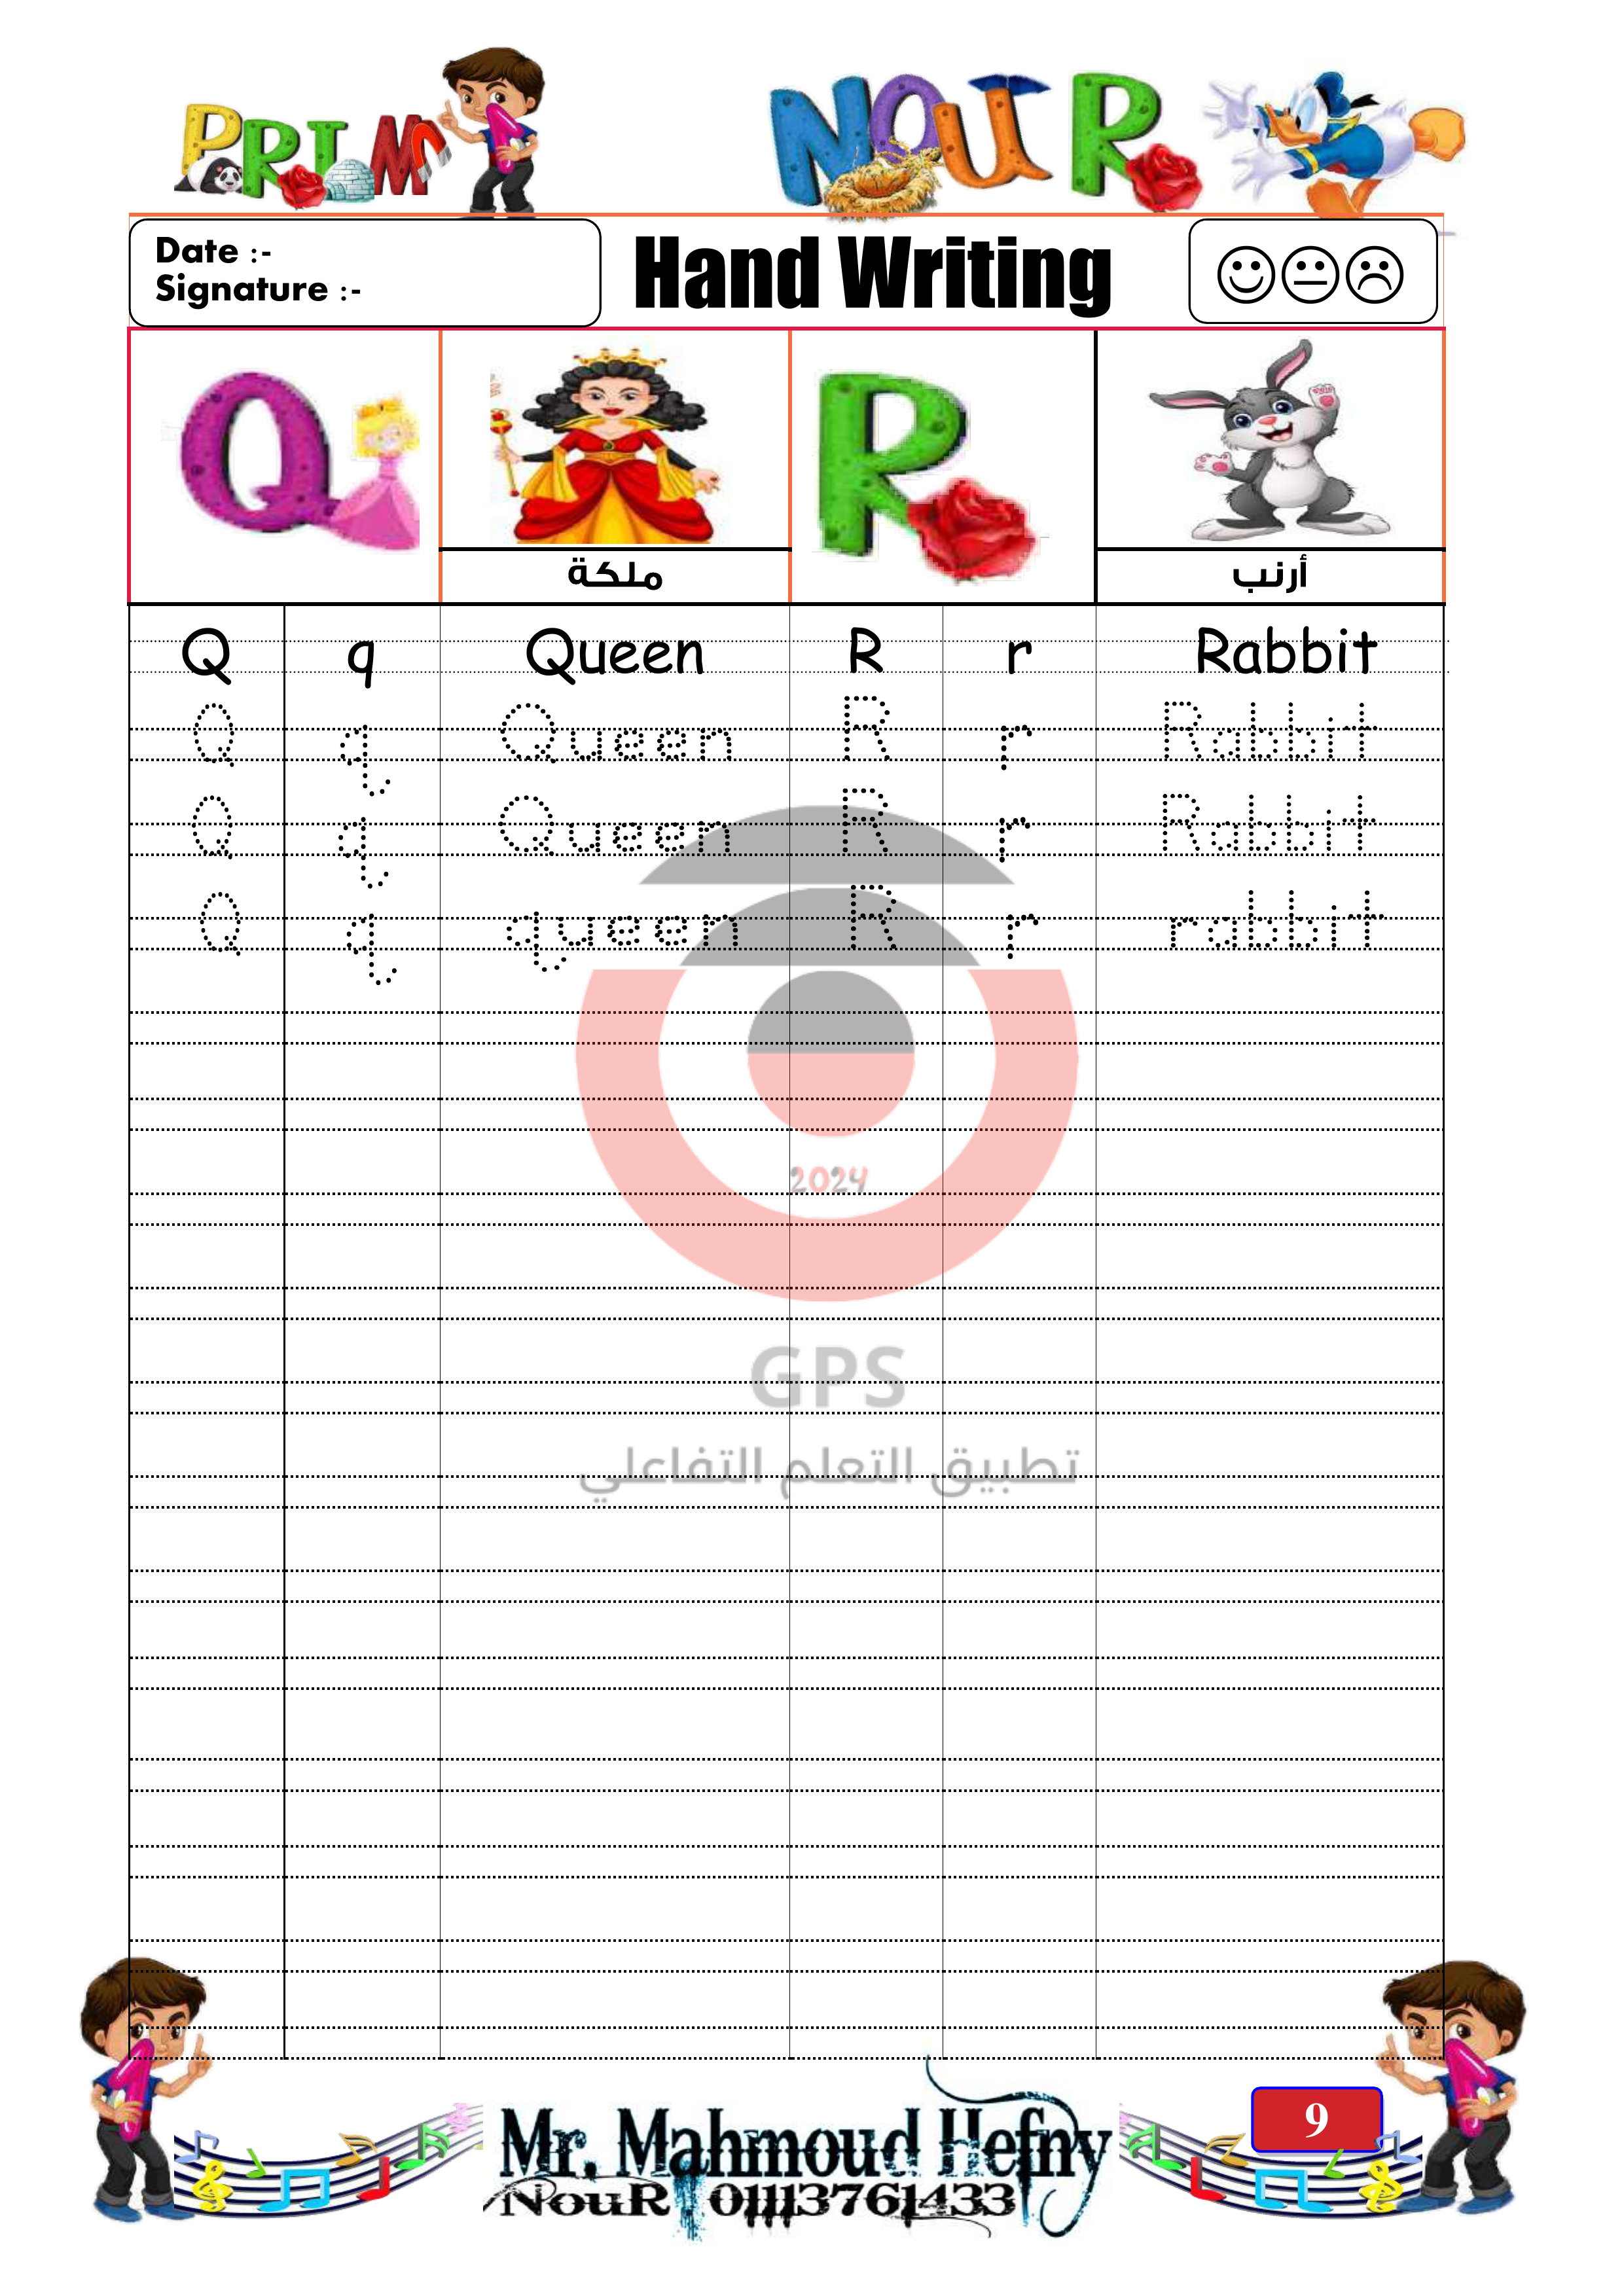 PRIM 1
NOUR
Date :-
Signature :-
Hand Writing
Q
R
ملكة
أرنب
Q q Queen R r Rabbit
Q q Queen R r Rabbit
Q q Queen R r Rabbit
Q q queen R r rabbit
2024
GPS
تطبيق التعلم التفاعلي
Mr. Mahmoud Hefny
NouR : 01113761433
9